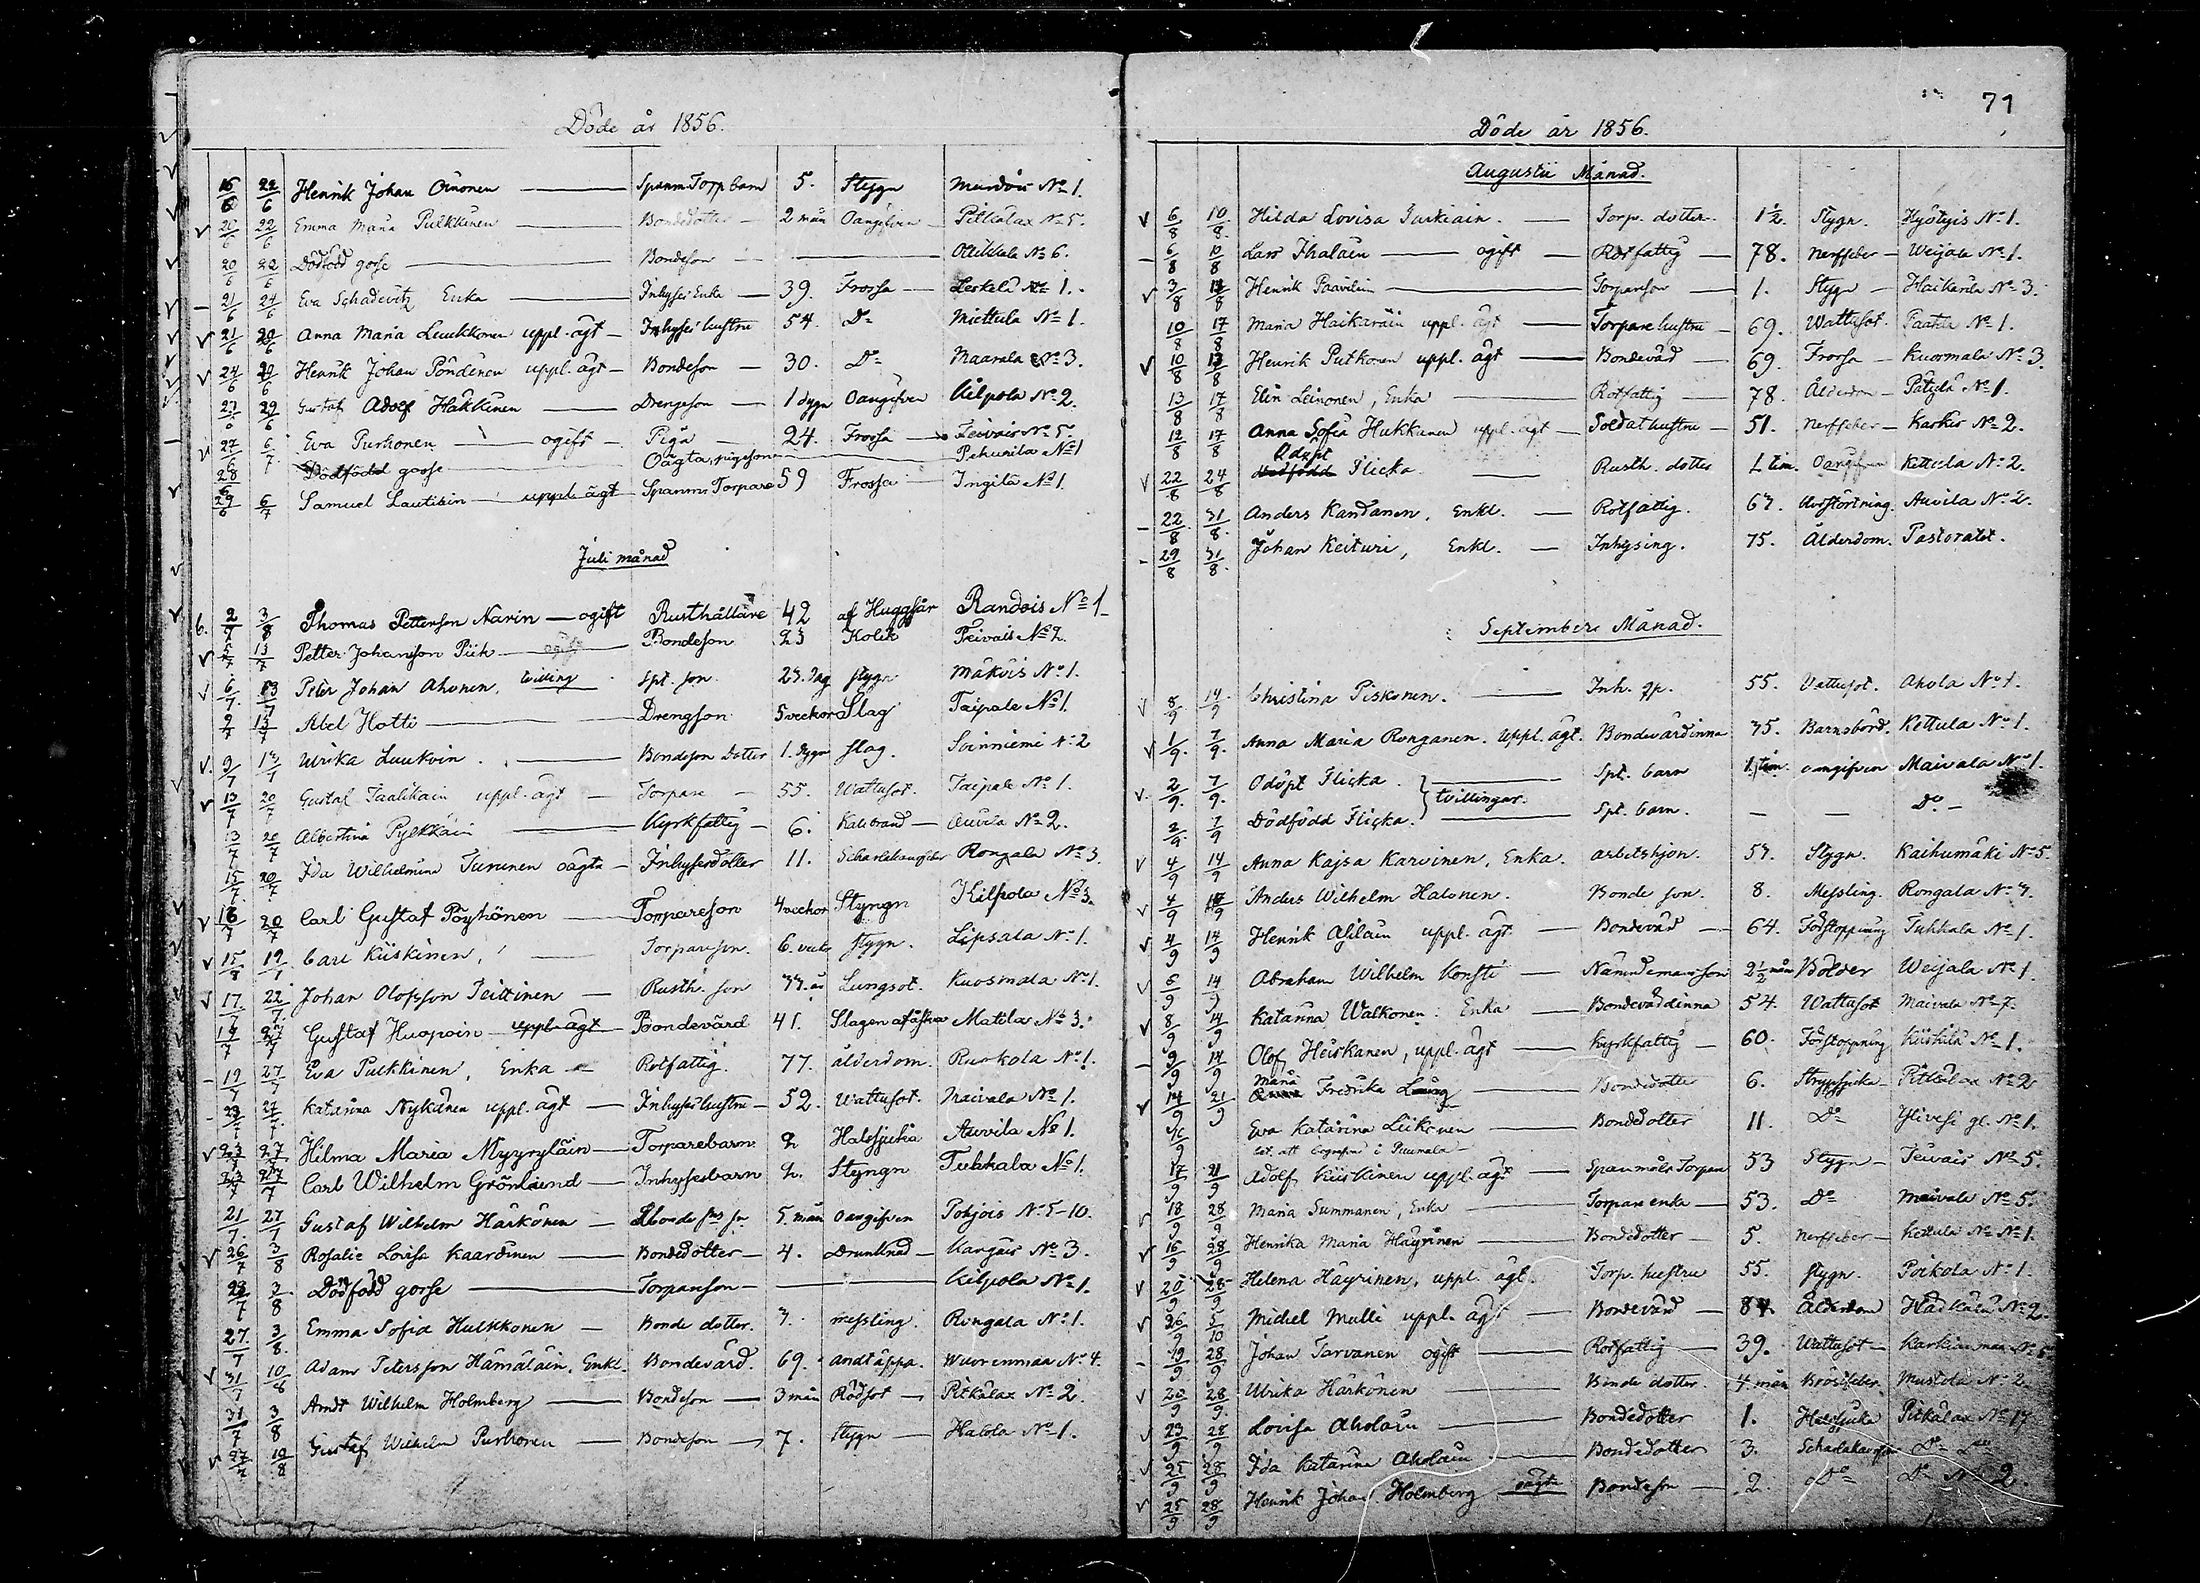 Döde år 1856.
16/6 22/6 Henrik Johan Oinonen Spanm. Torp barn 5. Stygn No 1.
20/6 22/6 Emma Maria Pulkkinen Bondedotter 2 mån Oangifven Pitkälax No 5.
20/6 22/6 Dödfödd gosse Bondeson No 6.
21/6 24/6 Eva Schadevitz Enka Inhyses Enka 39. Frossa Leskelä No 1.
21/6 Anna Maria Luukkonen uppl. ägt Inhyses hustru 54. Do Miettula No 1.
24/6 29/6 Henrik Johan Pöndenen uppl. ägt Bondeson 30. Do Maarala No 3.
27/6 29/6 Gustaf Adolf Häkkinen Drengeson 1 dygn Oangifven Kilpola No 2.
27/6 6/7 Eva Purhonen ogift Piga 24. Frossa Teivais No 5.
28/6 Dödfödd gosse Oägta, pigeson Pihurila No 1
29/6 6/7 Samuel Lautiain uppl. ägt Spanm: Torpare 59 Frossa Ingilä No 1.
Juli månad
6. 2/7 3/8 Thomas Petterson Narin ogift Rusthållare 42 af Huggsår Randois No 1
5/7 13/7 Petter Johansson Piik ogift Bondeson 23 Kolik Peivais No 2.
6/7 13/7 Peter Johan Ahonen, tvilling Spt. son. 23. dag stygn Mäkois No 1.
9/7 13/7 Abel Hotti Drengson 5 veckor Slag Taipale No 1.
9/7 13/7 Ulrika Luukoin. Bondeson Dotter 1. dygn slag. Soinniemi No 2
13/7 20/7 Gustaf Taalikain uppl. ägt Torpare 55. Wattusot. Taipale No 1.
13/7 20/7 Albertina Pylkkäin Kyrkfattig 6. Kallbrand Auvila No 2.
15/7 20/7 Ida Wilhelmina Turunen oägta Inhysesdotter 11. Scharlakansfeber Rongala No 3.
16/7 20/7 Carl Gustaf Pöyhönen Torpareson 4 veckor Styngn Kilpola No 3.
15/8 19/7 Carl Kiiskinen, Torpareson. 6. veck stygn. Lipsala No 1.
17/7 22/7 Johan Olofsson Teittinen Rusth. son Lungsot. Kuosmala No 1.
19/7 27/7 Gustaf Huopoin uppl. ägt Bondevärd 41. Slagen af åskan Matila No 3.
19/7 27/7 Eva Pulkkinen, Enka Rotfattig. 77. ålderdom. Ruokola No 1.
23/7 27/7 Katarina Nykänen uppl. ägt Inhyses hustru 52. Wattusot. Maivala No 1.
23/7 27/7 Hilma Maria Myyryläin Torparebarn 2 Halssjuka Auvila No 1.
23/7 27/7 Carl Wilhelm Grönlund Inhysesbarn 2. Styngn Tuhkala No 1.
21/7 27/7 Gustaf Wilhelm Härkönen 5. mån Oangifven Pohjois No 5-10.
26/7 3/8 Rosalie Lovisa Kaartinen Bondedotter 4. Drunknad Kangais No 3.
28/7 3/8 Dödfödd gosse Torpareson Kilpola No 1.
27/7 3/8 Emma Sofia Hulkkonen Bonde dotter. messling. Rongala No 1.
31/7 10/8 Adam Petersson Hämäläin, Enkl. Bondevärd. 69. andtäppa. Wuorenmaa No 4.
31/7 3/8 Arndt Wilhelm Holmberg Bondeson 3 mån Rödsot Pitkälax No 2.
27/7 Gustaf Wilhelm Purhonen Bondeson 7. Stygn Halola No 1.
71
Döde år 1856.
Augusti Månad.
6/8 10/8 Hilda Lovisa Turkiain. Torp. dotter. 1½. Stygn. Hyötyis No 1.
6/8 10/8 Lars Ihalain ogift Rotfattig 78. Nerffeber Weijala No 1.
3/8 Henrik Paavilain Torpareson 1. Stygn Haikarila No 3.
10/8 17/8 Maria Haikarain uppl. ägt Torpare hustru 69. Wattusot. Paatela No 1.
10/8 Henrik Putkonen uppl. ägt Bondevärd 69. Frossa Kuosmala No 3.
13/8 17/8 Elin Leinonen, Enka Rotfattig 78. Ålderdom No 1.
12/8 17/8 Anna Sofia Hukkanen uppl. ägt Soldat hustru 51. Nerffeber Karkis No 2.
22/8 24/8 Odöpt Flicka. Rusth. dotter 1 tim. Oangifven Kettula No 2.
22/8 31/8 Anders Kandanen, Enkl. Rotfattig. 67. Auvila No 2.
29/8 31/8 Johan Keituri, Enkl. Inhysing. 75. Ålderdom. Pastoratet.
Septembers Månad.
8/9 14/9 Christina Piskonen. Inh. 55. Vattusot. Ahola No 1.
1/9 7/9 Anna Maria Ronganen. uppl. ägt. Bondevärdinna 35. Barnsbörd. Kettula No 1.
2/9 7/9 Odöpt Flicka. tvillingar. Spt. barn 1 tim. oangifven Maivala No 1.
2/9 7/9 Dödfödd Flicka. Spt. barn. Do
4/9 14/9 Anna Kajsa Karvinen, Enka. arbetshjon. 57. Stygn. Kaihumäki No 5.
4/9 Anders Wilhelm Halonen. Bonde son. 8. Messling. Rongala No 3.
4/9 14/9 Henrik Ahlain uppl. ägt Bondevärd 64. Förstoppning Tuhkala No 1.
6/9 14/9 Abraham Wilhelm Konsti Nämndemansson 2½ mån Bölder Weijala No 1.
8/9 14/9 Katarina Walkonen: Enka Bondevärdinna 54. Wattusot Maivala No 7.
9/9 14/9 Olof Heiskanen, uppl. ägt Kyrkfattig 60. Förstoppning Kiiskilä No 1.
14/9 21/9 Maria Fredrika Laung Bondedotter 6. Strypsjuka Pitkälax No 2
Eva Katarina Leikonen Bondedotter 11. Do Ylivesi gl. No 1.
bet. att begrafva i Puumala
17/9 21/9 Adolf Kiiskinen uppl. ägt Spanmåls Torpare 53 Stygn Teivais No 5.
18/9 28/9 Maria Summanen, Enka Torpare enka 53. Do Maivala No 5.
16/9 28/9 Henrika Maria Häyrinen Bondedotter 5. Nerffeber Kettula No 1.
20/9 28/9 Helena Häyrinen, uppl. ägt. Torp. hustru 55. stygn. Poikola No 1.
26/9 5/10 Michel Mulli uppl. ägt Bondevärd 84. Ålderdom No 2.
19/9 28/9 Johan Tarvanen ogift Rotfattig 39. Wattusot
20/9 28/9 Ulrika Härkönen Bonde dotter 4 mån Bröstfeber. Mustola No 2.
23/9 28/9 Lovisa Aholain Bondedotter 1. Halssjuka Pitkälax No 17
25/9 28/9 Ida Katarina Aholain Bondedotter 3. Scharlakansfeber Do Do
25/9 28/9 Henrik Johan Holmberg oägta Bondeson 2. Do Do No 2.